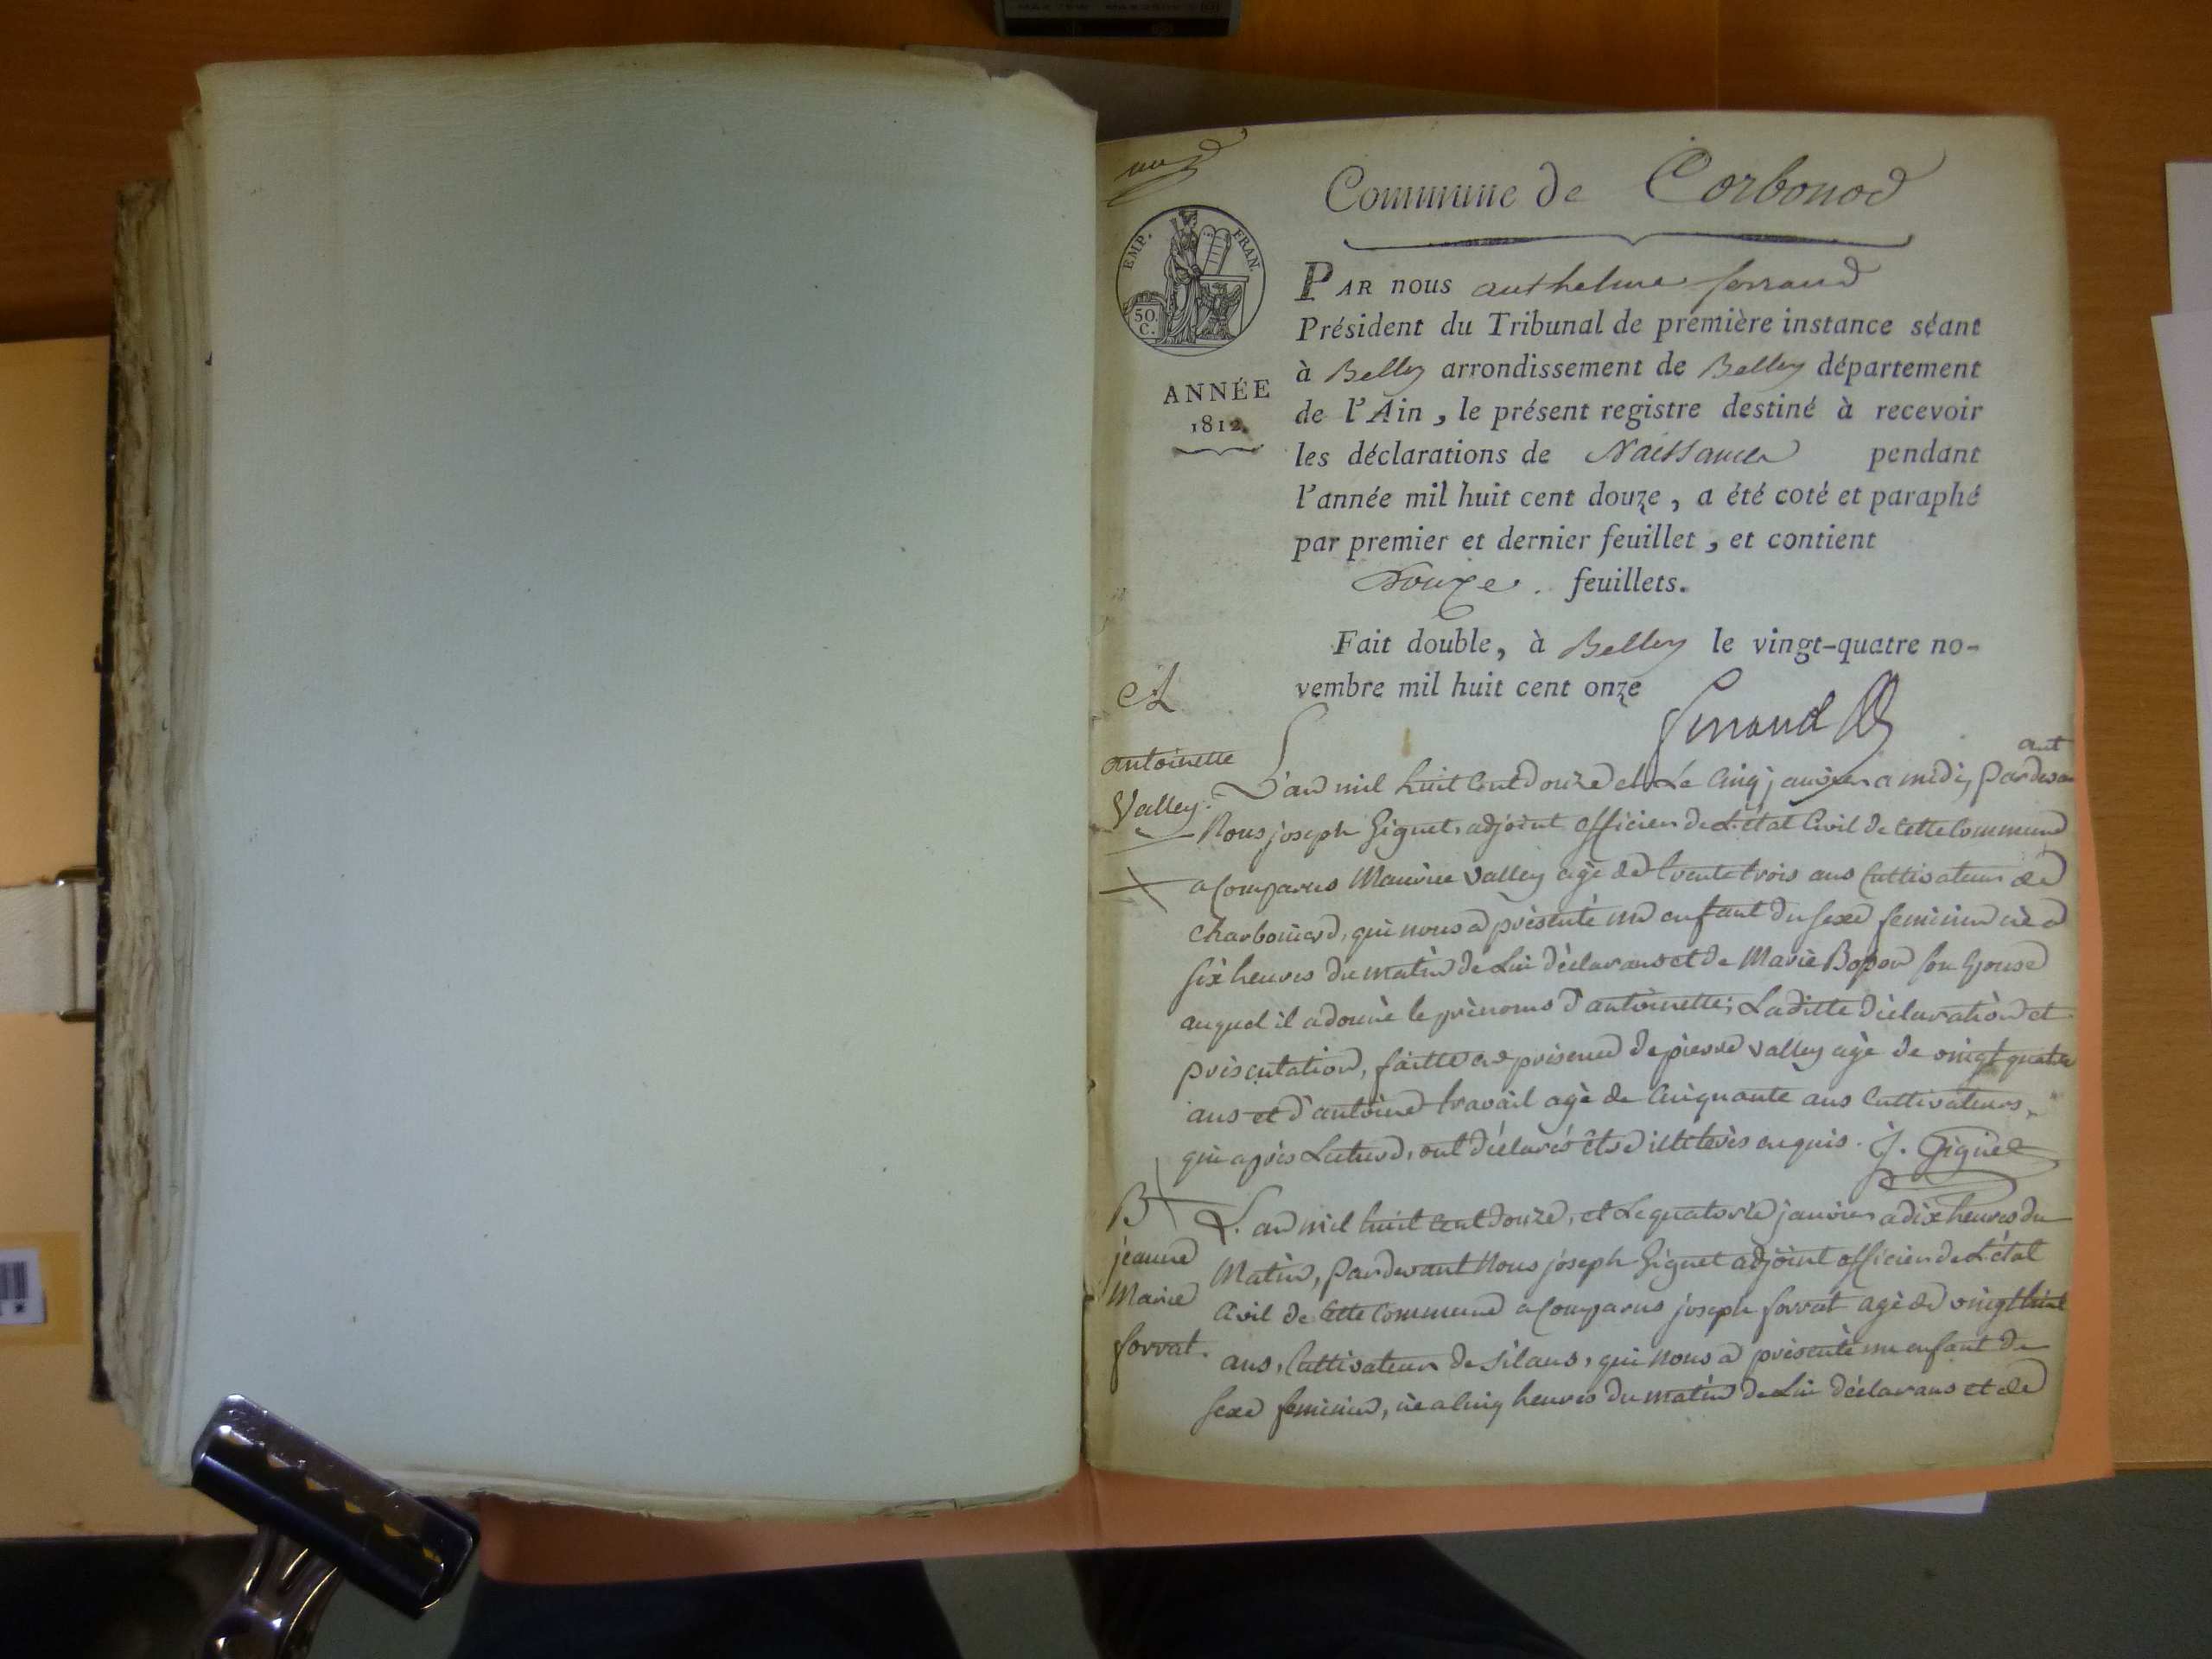 Commune de Corbonod
EMP. FRAN.
50.
C.
PAR nous anthelme ferrand
Président du Tribunal de première instance séant
à Belley arrondissement de Belley département
ANNÉE
1812.
de l'Ain, le présent registre destiné à recevoir
les déclarations de Naissance pendant
l'année mil huit cent douze, a été coté et paraphé
par premier et dernier feuillet, et contient
Douze. feuillets.
Fait double, à Belley le vingt-quatre no-
vembre mil huit cent onze
ferrand
A
antoinette
Valley.
L'an mil huit Cent douze et Le Cinq janvier a midi, Pardevant
Nous joseph Giguet, adjoint officier de L'état Civil de Cette Commune
a Comparus Maurice Valley agé de trente trois ans Cultivateur de
Charbonod, qui nous a présenté un enfant du sexe feminin né a
six heures du matin de Lui déclarans et de Marie Bosson son Epouse
auquel il a donné le prénoms d'antoinette; Laditte déclaration et
présentation, faitte en présence de pierre Valley agé de vingt quatre
ans et d'antoine travail agé de Cinquante ans Cultivateurs,
qui après Lecture, ont déclarés être illiterés enquis. J. Giguet
B
jeanne
Marie
forrat.
L'an mil huit Cent douze, et Le quatorze janvier a dix heures du
Matin, Pardevant Nous joseph Giguet adjoint officier de L'état
Civil de Cette Commune a Comparus joseph forrat agé de vingt huit
ans, Cultivateur de silans, qui nous a présenté un enfant de
sexe feminin, né a Cinq heures du matin de Lui déclarans et de